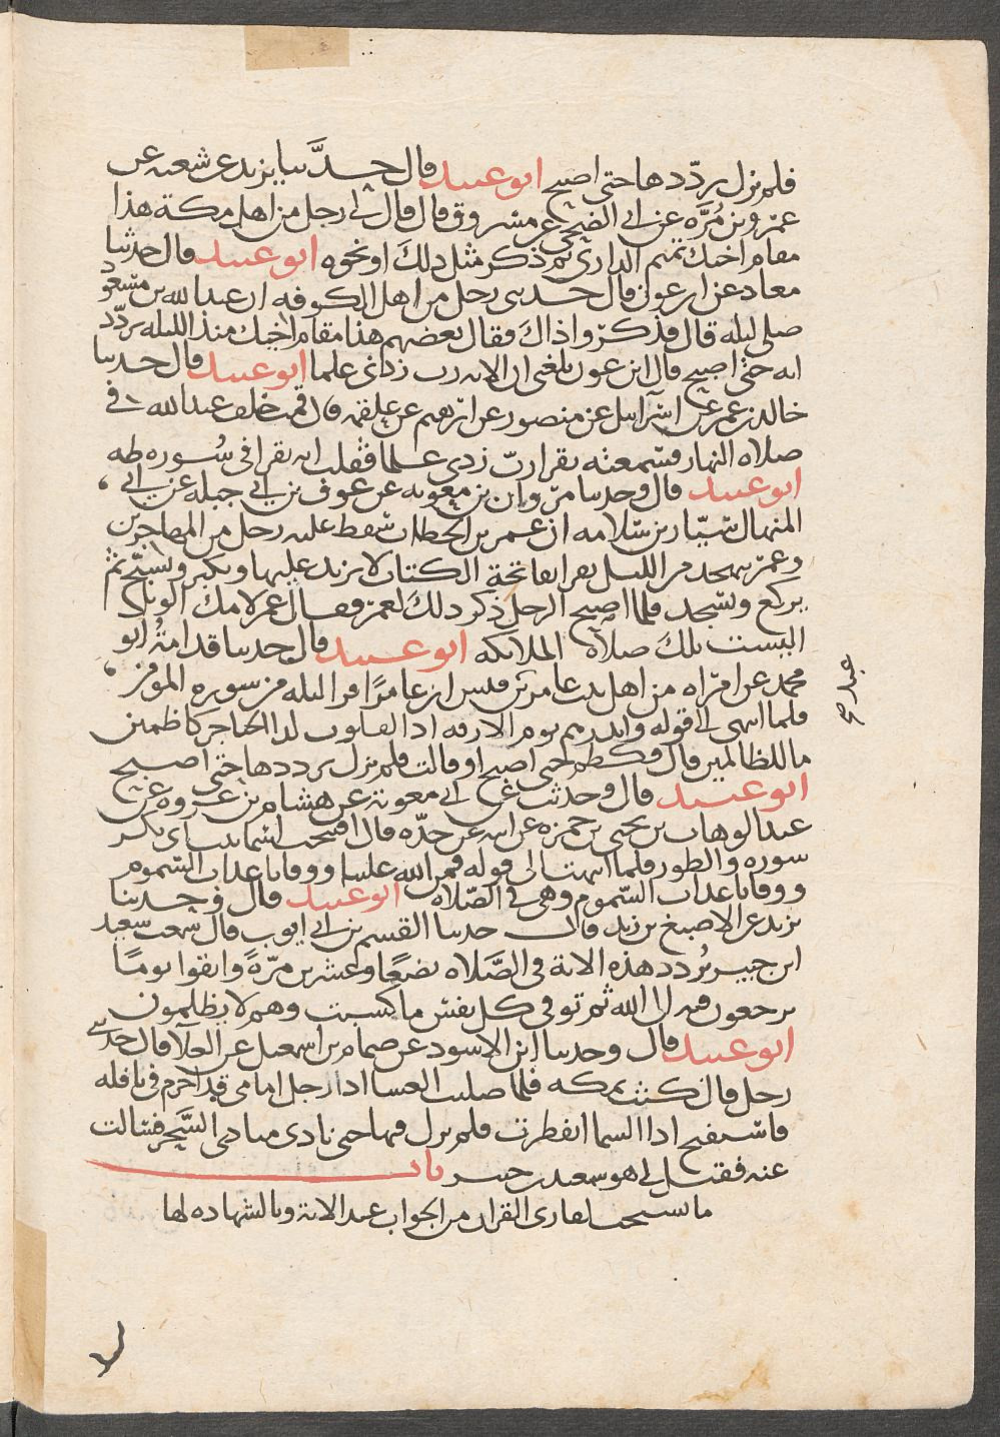 فلم يزل يرددها حتى اصبح ابو عبيد قال حدثنا يزيد عن شعبه عن
عمرو بن مره عن ابي الضحى عن مسروق قال قال لي رجل من اهل مكة هذا
مقام اخيك تميم الداري ثم ذكر مثل ذلك او نحوه ابو عبيد قال حدثنا
معاذ عن ابن عون قال حدثني رجل من اهل الكوفه ان عبد الله بن مسعود
صلى ليله قال فذكروا ذاك فقال بعضهم هذا مقام اخيك منذ الليله يردد
ايه حتى اصبح قال ابن عون بلغني ان الايه رب زدني علما ابو عبيد قال حدثنا
خالد بن عمر عن اسرائيل عن منصور عن ابرهيم عن علقمه قال قمت خلف عبد الله في
صلاه النهار فسمعته يقرا رب زدني علما فقلت انه يقرا في سوره طه
ابو عبيد قال وحدثنا مروان بن معويه عن عوف بن ابي جبله عن ابي
المنهال سيار بن سلامه ان عمر بن الخطاب سقط عليه رجل من المهاجرين
وعمر يتهجد من الليل يقرا بفاتحة الكتاب لا يزيد عليها ويكبر ويسبح ثم
يركع ويسجد فلما اصبح الرجل ذكر ذلك لعمر فقال عمر لامك الويل
اليست تلك صلاة الملائكه ابو عبيد قال حدثنا قدامة ابو
محمد عن امراه من اهل بيت عامر بن قيس ان عامرا قرا ليله من سوره المومن
فلما انتهى الى قوله وانذرهم يوم الازفه اذ القلوب لدا الحناجر كاظمين
ما للظالمين قال فكظم حتى اصبح او قالت فلم يزل يرددها حتى اصبح
ابو عبيد قال وحدثت عن ابي معوية عن هشام بن عروه عن
عبد الوهاب بن يحيى بن حمزه عن ابيه عن جده قال افتتحت اسما بنت ابي بكر
سوره والطور فلما انتهت الى قوله فمن الله علينا ووقانا عذاب السموم
ووقانا عذاب السموم وهي في الصلاه ابو عبيد قال وحدثنا
يزيد عن الاصبغ بن زيد قال حدثنا القسم بن ابي ايوب قال سمعت سعيد
ابن جبير يردد هذه الاية في الصلاه بضعا وعشرين مرة واتقوا يوما
يرجعون فيه الى الله ثم توفى كل نفس ما كسبت وهم لا يظلمون
ابو عبيد قال وحدثنا ابن الاسود عن ضمام بن اسمعيل عن العلا قال حدثني
رجل قال كنت بمكه فلما صليت العشا اذا رجل امامي قد احرم في نافله
فاستفتح اذا السما انفطرت فلم يزل فيها حتى نادى منادي السحر فسالت
عنه فقيل لي هو سعيد بن جبير باب
ما يستحب لقارئ القران من الجواب عند الاية والشهاده لها